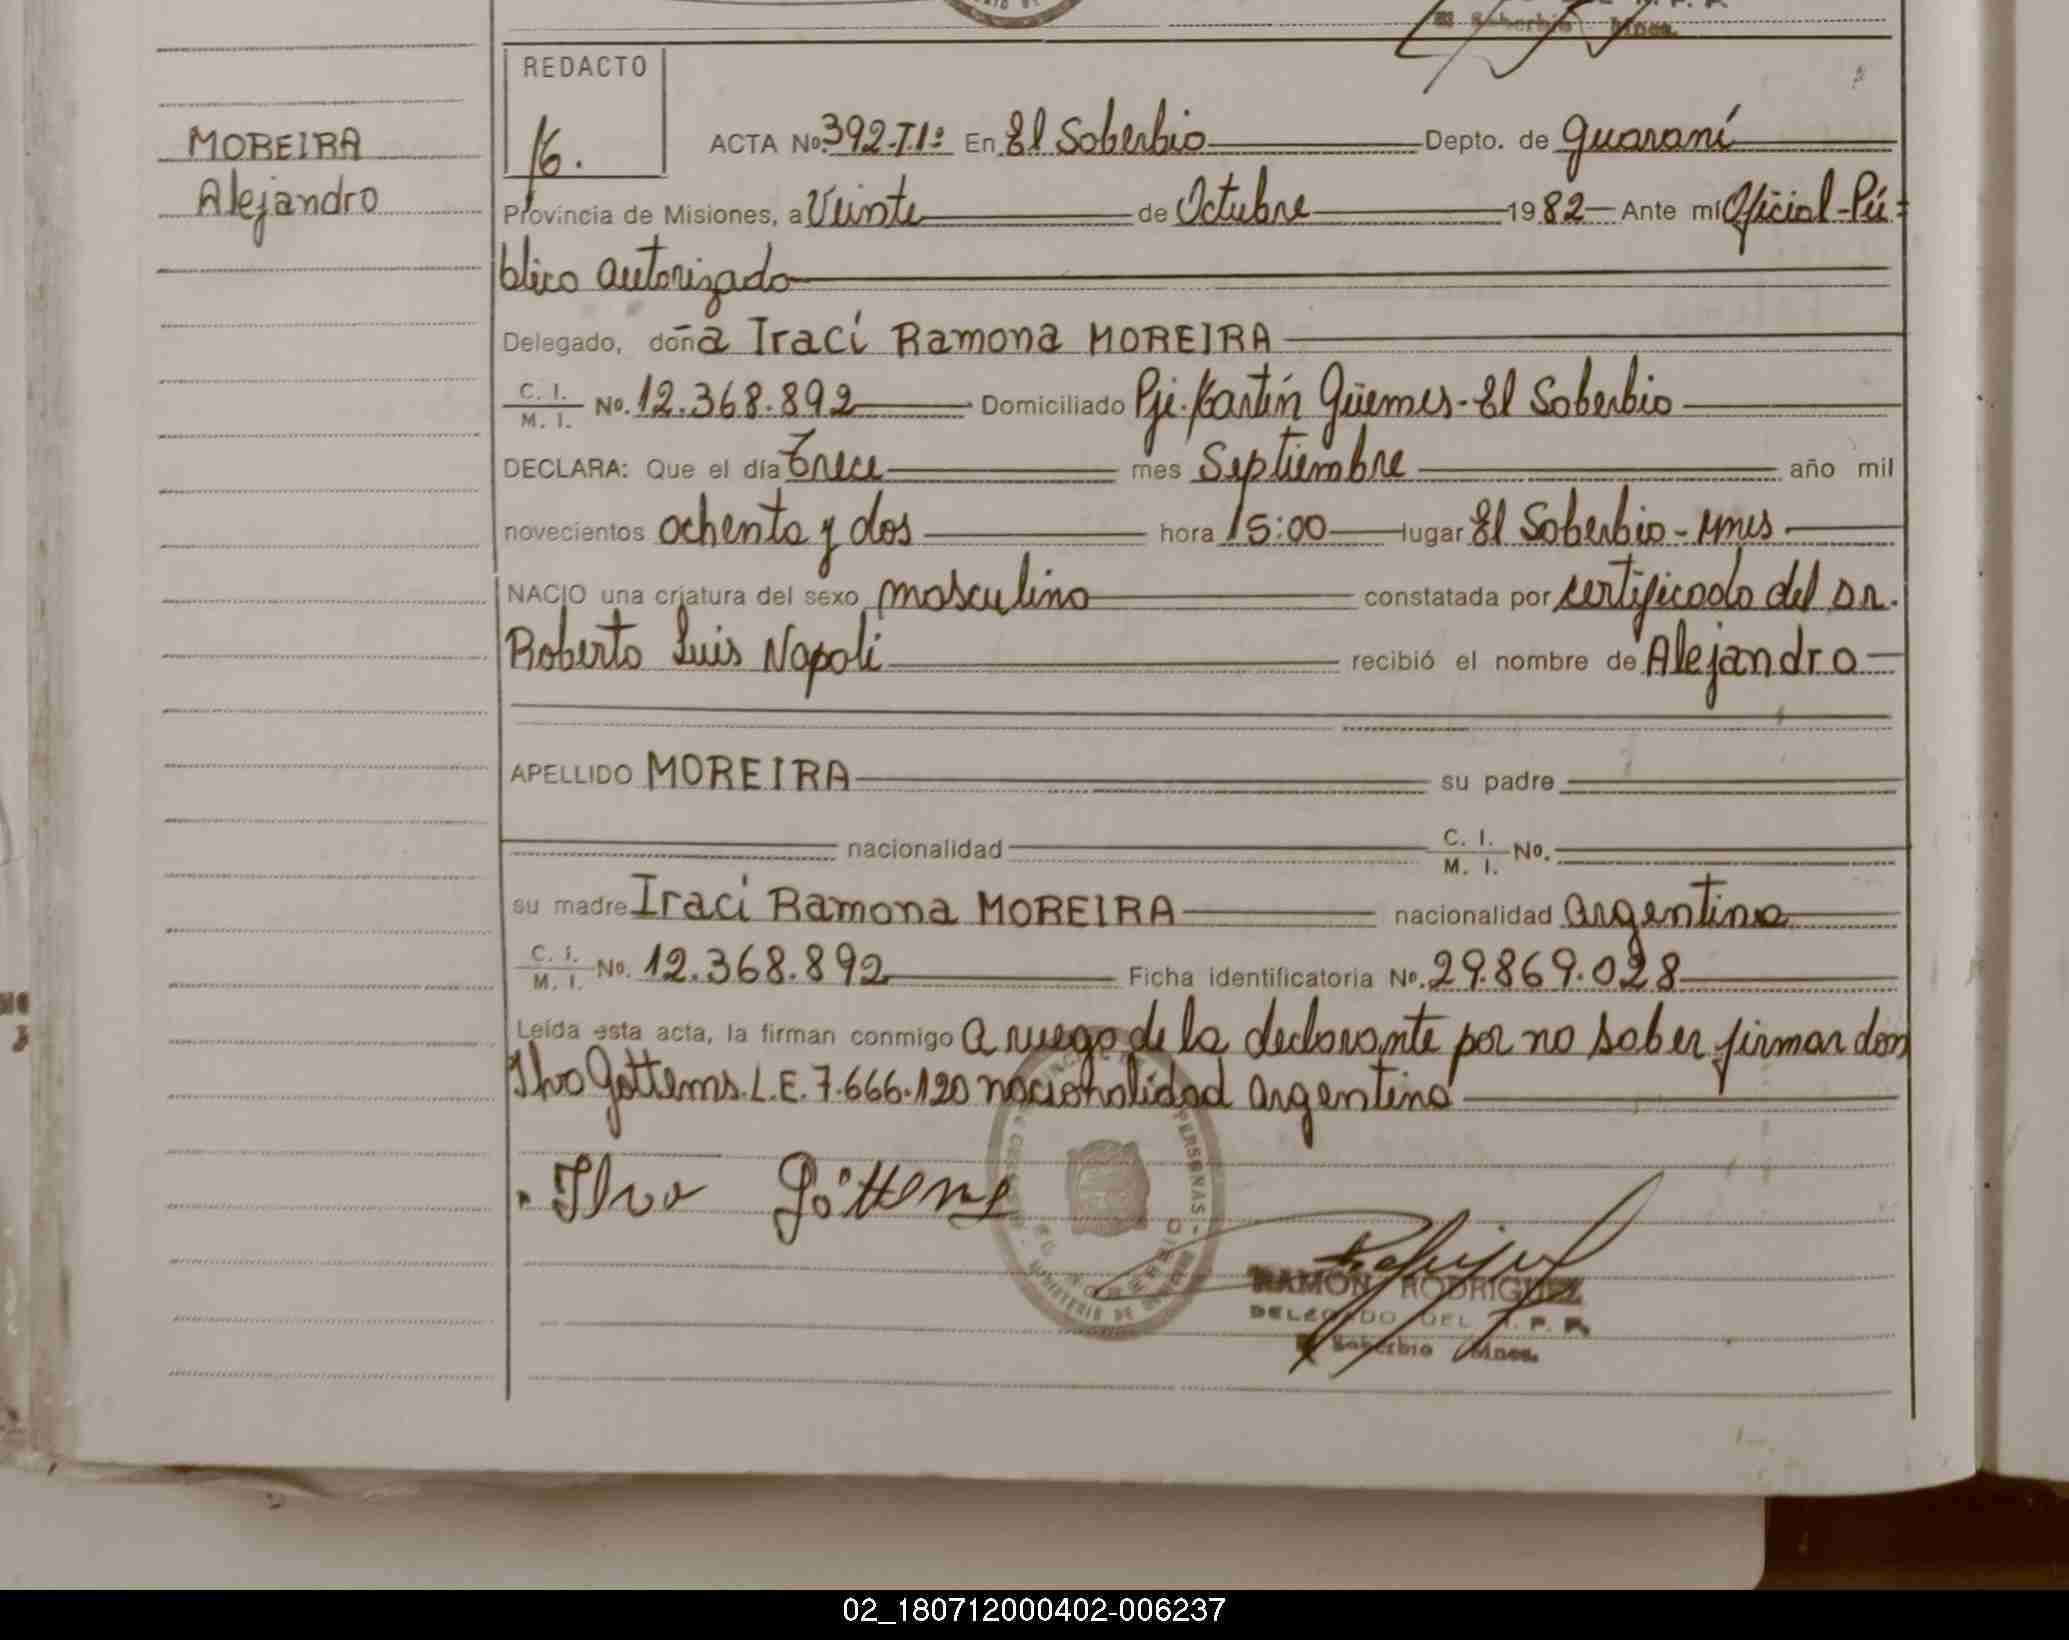 El Soberbio Mnes.
REDACTO
MOREIRA
Alejandro
ACTA No. 392-T1º En El Soberbio Depto. de Guaraní
Provincia de Misiones, a Veinte de Octubre 1982 Ante mí Oficial Pú-
blico autorizado
Delegado, doña Iraci Ramona MOREIRA
C. I. / M. I. No. 12.368.892 Domiciliado Pje. Martín Güemes - El Soberbio
DECLARA: Que el día Trece mes Septiembre año mil
novecientos ochenta y dos hora 15:00 lugar El Soberbio - Mnes
NACIO una criatura del sexo masculino constatada por certificado del Dr.
Roberto Luis Napoli recibió el nombre de Alejandro
APELLIDO MOREIRA su padre
nacionalidad C. I. / M. I. No.
su madre Iraci Ramona MOREIRA nacionalidad argentina
C. I. / M. I. No. 12.368.892 Ficha identificatoria No. 29.869.028
Leída esta acta, la firman conmigo a ruego de la declarante por no saber firmar don
Ilvo Gottems. L.E. 7.666.120 nacionalidad argentino
Ilvo Göttems
RAMON RODRIGUEZ
DELEGADO DEL R. P. P.
El Soberbio Mnes.
02_180712000402-006237